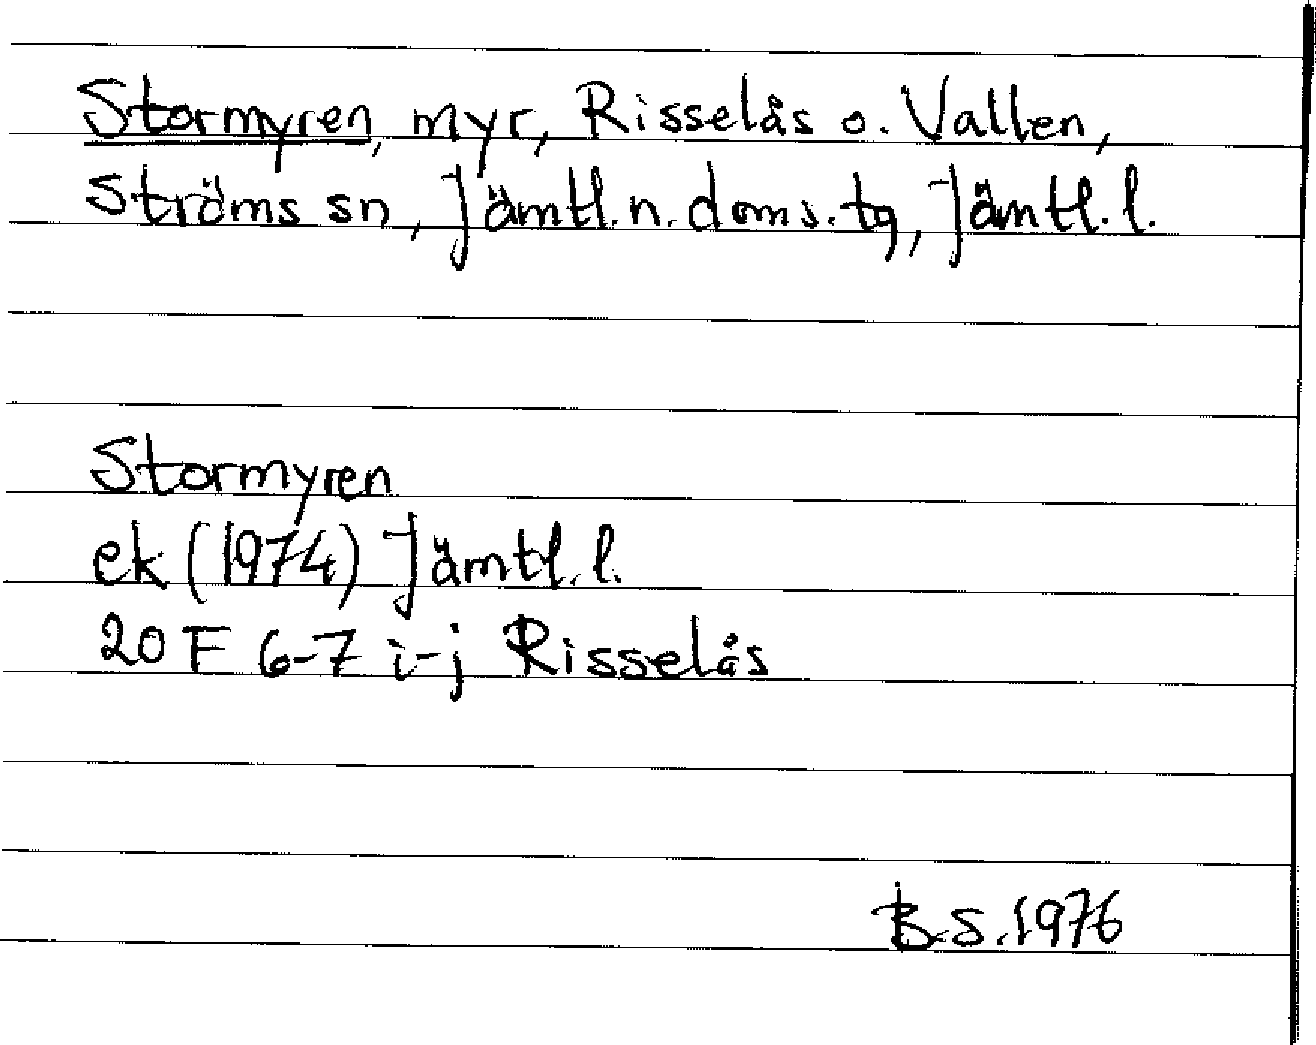 Stormyren, myr, Risselås o. Vallen,
Ströms sn, Jämtl. n. doms. tg, Jämtl. l.
Stormyren
ek (1974) Jämtl. l.
20 F 6-7 i-j Risselås
B.S. 1976